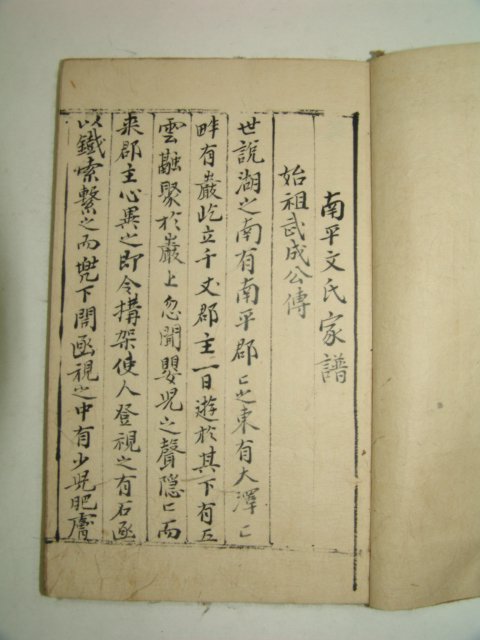 南平文氏家譜
始祖武成公傳
世說湖之南有南平郡〻之東有大澤〻
畔有巖屹立千丈郡主一日遊於其下有五
雲融聚於巖上忽聞嬰兒之聲隱〻而
來郡主心異之即令搆架使人登視之有石凾
以鐵索繫之而兠下開凾視之中有少兒肥膚